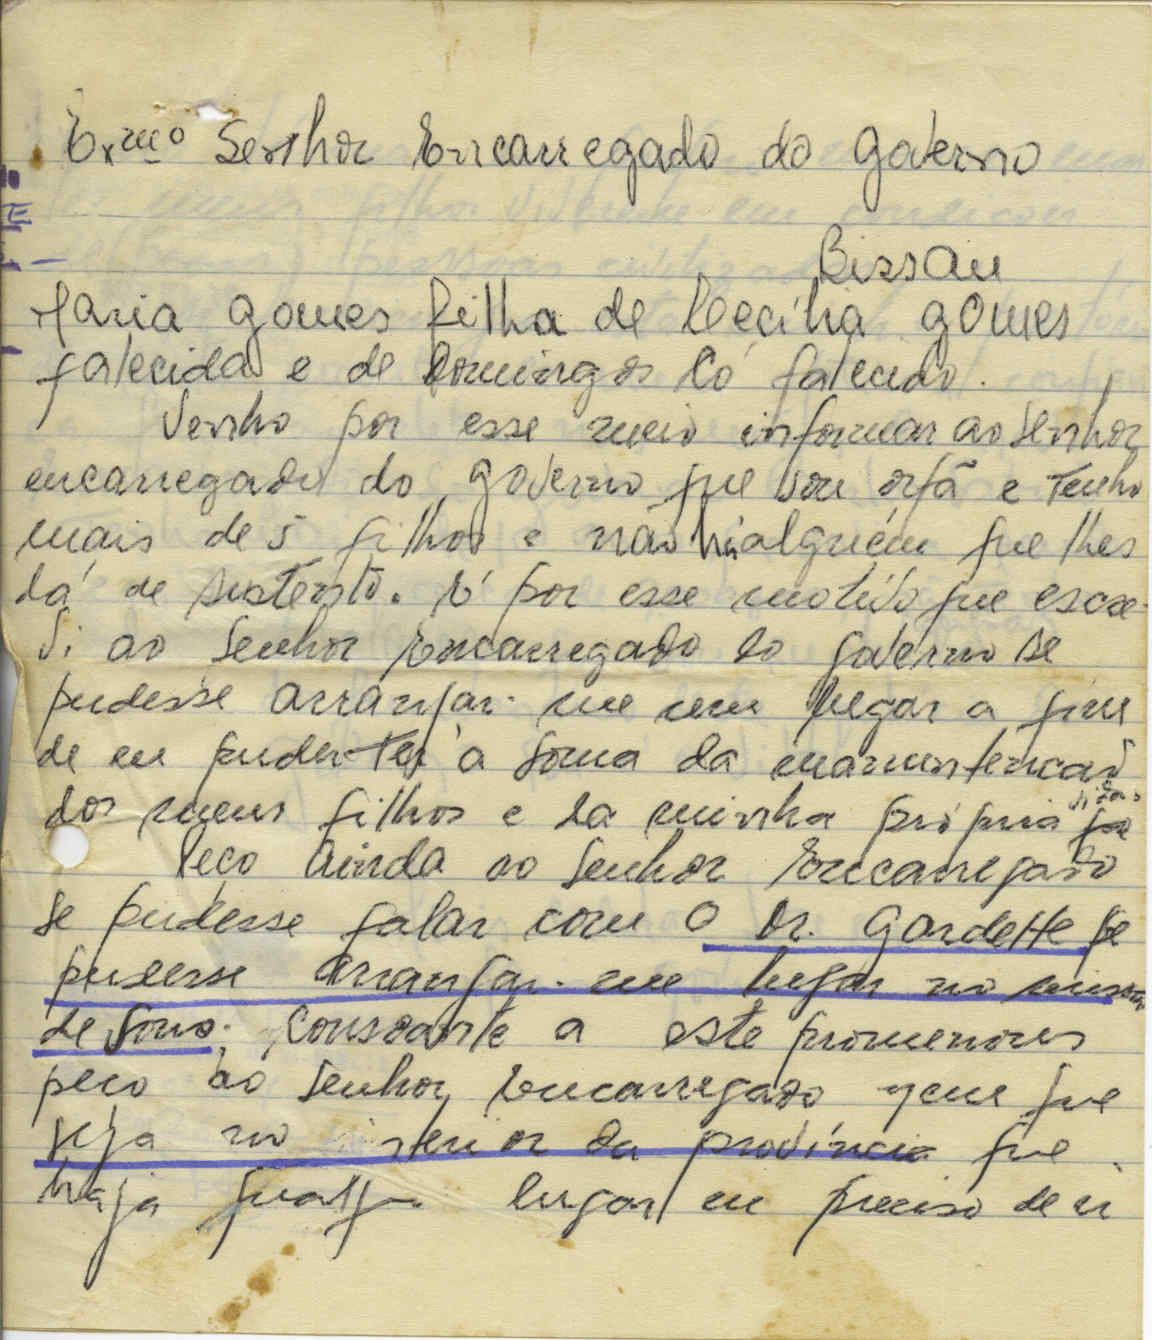 Exmo Senhor Encarregado do Governo
Bissau
Maria Gomes filha de Cecília Gomes
falecida e de Domingos Có falecido.
Venho por esse meio informar ao Senhor
encarregado do governo que sou orfã e tenho
mais de 5 filhos e não há alguém que lhes
dá de sustento. E por esse motivo que escre-
vi ao Senhor Encarregado do Governo se
pudesse arranjar-me um lugar a fim
de eu puder ter a soma da
dos meus filhos e da minha própria vida
Peço ainda ao Senhor Encarregado
se pudesse falar com o Dr. Gardette se
pudesse arranjar-me lugar no
de sono. Consoante a este promenores
peço ao Senhor Encarregado nem que
seja no interior da província que
haja lugar eu preciso de ir